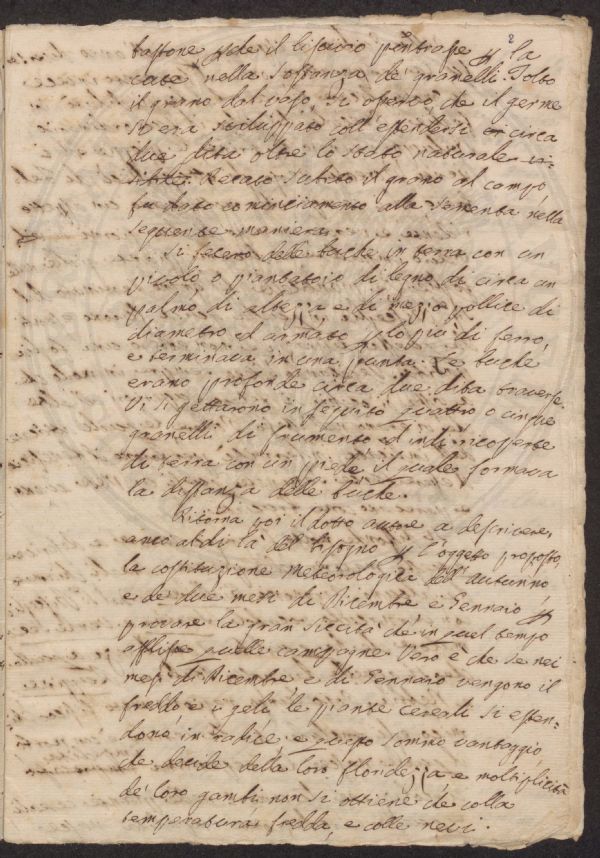 2
bastone, perchè il liscivio penetrasse per la
cute nella sostanza de' granelli. Tolto
il grano dal vaso, si osservò, che il germe
si era sviluppato coll'estendersi circa
due dita oltre lo stato naturale.
Recato subito il grano al campo,
fu dato cominciamento alla sementa nella
seguente maniera.
Si fecero delle buche in terra con un
picolo o piantatoio di legno di circa un
palmo di altezza e di mezzo pollice di
diametro ed armato per lo più di ferro,
e terminava in una punta. Le buche
erano profonde circa due dita traverse.
Vi si gettarono in seguito quattro o cinque
granelli di frumento ed indi ricoperte
di terra con un piede, il quale formava
la distanza delle buche.
Ritorna poi il dotto autore a descrivere,
anco al di là del bisogno per l'oggetto proposto,
la costituzione meteorologica dell'autunno
e de' due mesi di Dicembre e Gennaio per
provare la gran siccità che in quel tempo
afflisse quelle campagne. Vero è che se nei
mesi di Dicembre e di Gennaio vengono il
freddo, e i geli, le piante cereali si esten-
dono in radice, e questo sommo vantaggio,
che decide della loro floridezza e moltiplicità
de' loro gambi non si ottiene che colla
temperatura fredda, e colle nevi.